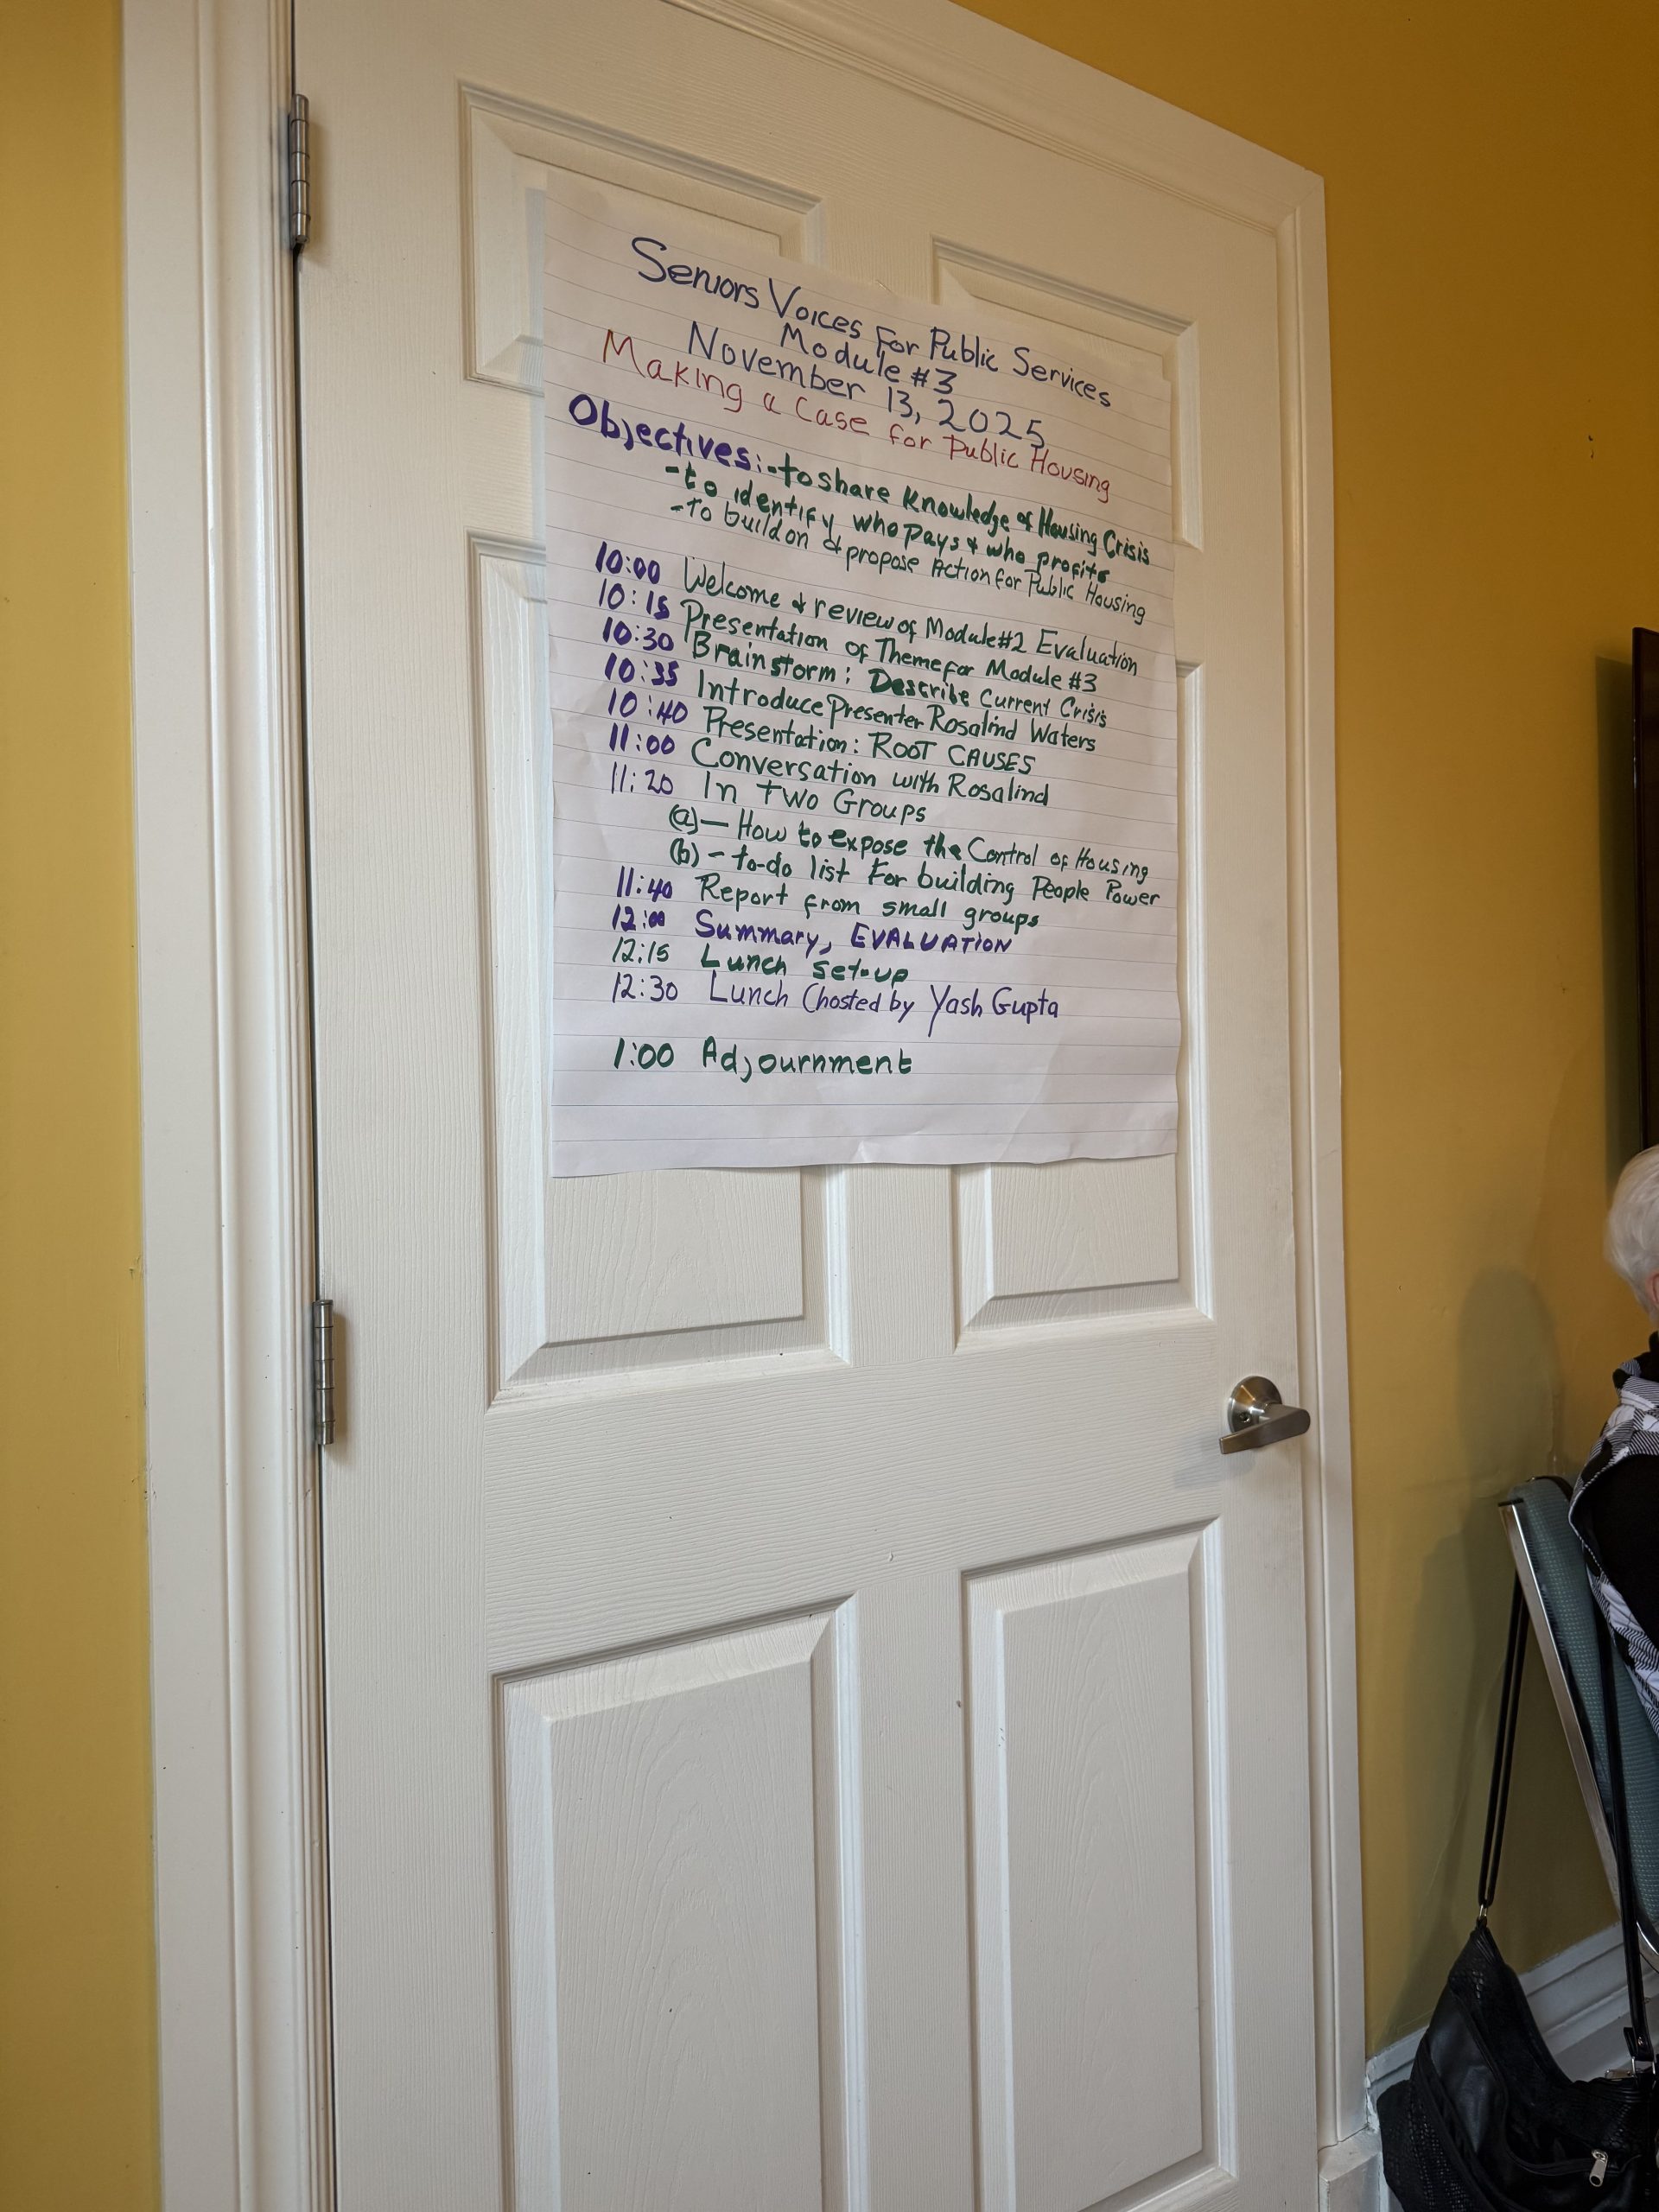 Seniors Voices For Public Services
Module #3
November 13, 2025
Making a Case for Public Housing
Objectives:-to share Knowledge of Housing Crisis
-to identify who pays & who profits
-To build on & propose Action for Public Housing
10:00 Welcome & review of Module #2 Evaluation
10:15 Presentation of Theme for Module #3
10:30 Brainstorm: Describe Current Crisis
10:35 Introduce Presenter Rosalind Waters
10:40 Presentation: ROOT CAUSES
11:00 Conversation with Rosalind
11:20 In Two Groups
(a)— How to expose the Control of Housing
(b) - to-do list For building People Power
11:40 Report from small groups
12:00 Summary, EVALUATION
12:15 Lunch set-up
12:30 Lunch (hosted by Yash Gupta
1:00 Adjournment